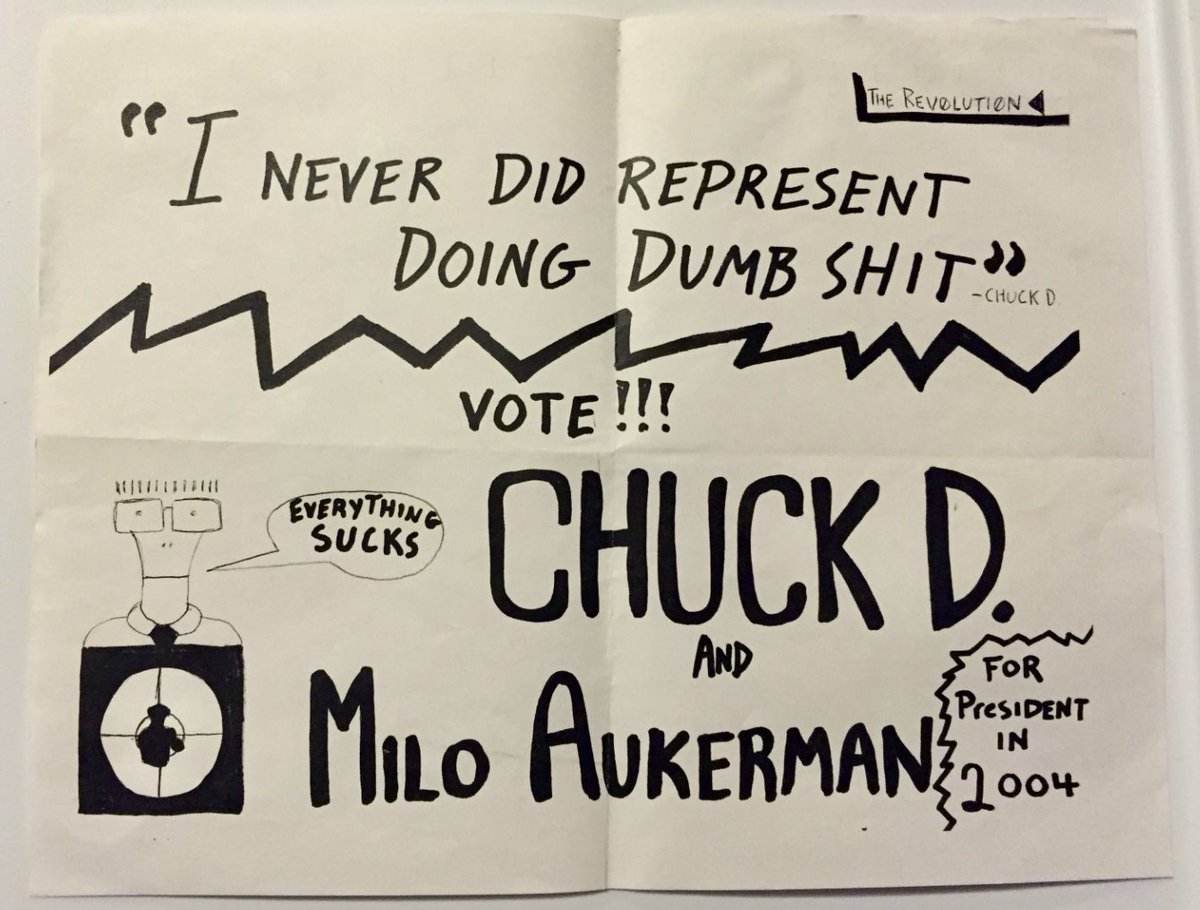 THE REVOLUTION
"I NEVER DID REPRESENT
DOING DUMB SHIT"
-CHUCK D.
VOTE!!!
EVERYTHING
SUCKS
CHUCK D.
AND
MILO AUKERMAN
FOR
PRESIDENT
IN
2004